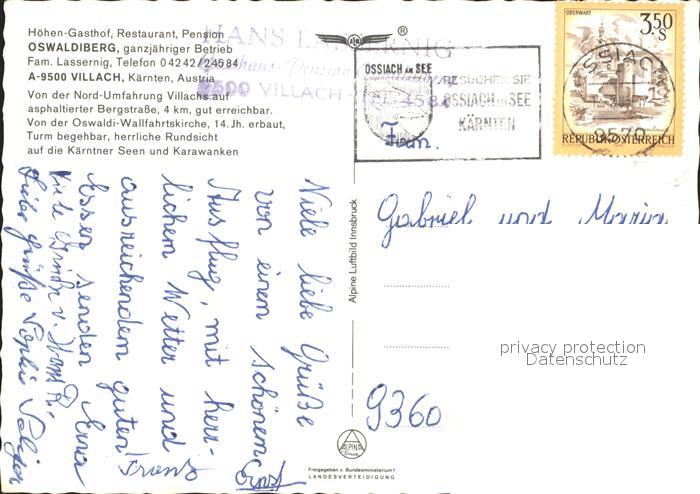 Höhen-Gasthof, Restaurant, Pension
OSWALDIBERG, ganzjähriger Betrieb
Fam. Lassernig, Telefon 04242/24584
A-9500 VILLACH, Kärnten, Austria
Von der Nord-Umfahrung Villachs auf
asphaltierter Bergstraße, 4 km, gut erreichbar.
Von der Oswaldi-Wallfahrtskirche, 14. Jh. erbaut,
Turm begehbar, herrliche Rundsicht
auf die Kärntner Seen und Karawanken
HANS LASSERNIG
9500 VILLACH
®
OSSIACH AM SEE
BESUCHEN SIE
OSSIACH AM SEE
KÄRNTEN
OBERWART
3,50 S
REPUBLIK ÖSTERREICH
OSSIACH
9570
Fam.
Gabriel und Maria
9360
Viele liebe Grüße
von einem schönen
Ausflug, mit herr-
lichem Wetter und
ausreichendem guten
Essen senden Euer
Franz
Ernst
Viele Grüße v.
Liebe Grüße Sophie
Alpine Luftbild Innsbruck
ALPINE
Freigegeben v. Bundesministerium f.
LANDESVERTEIDIGUNG
privacy protection
Datenschutz